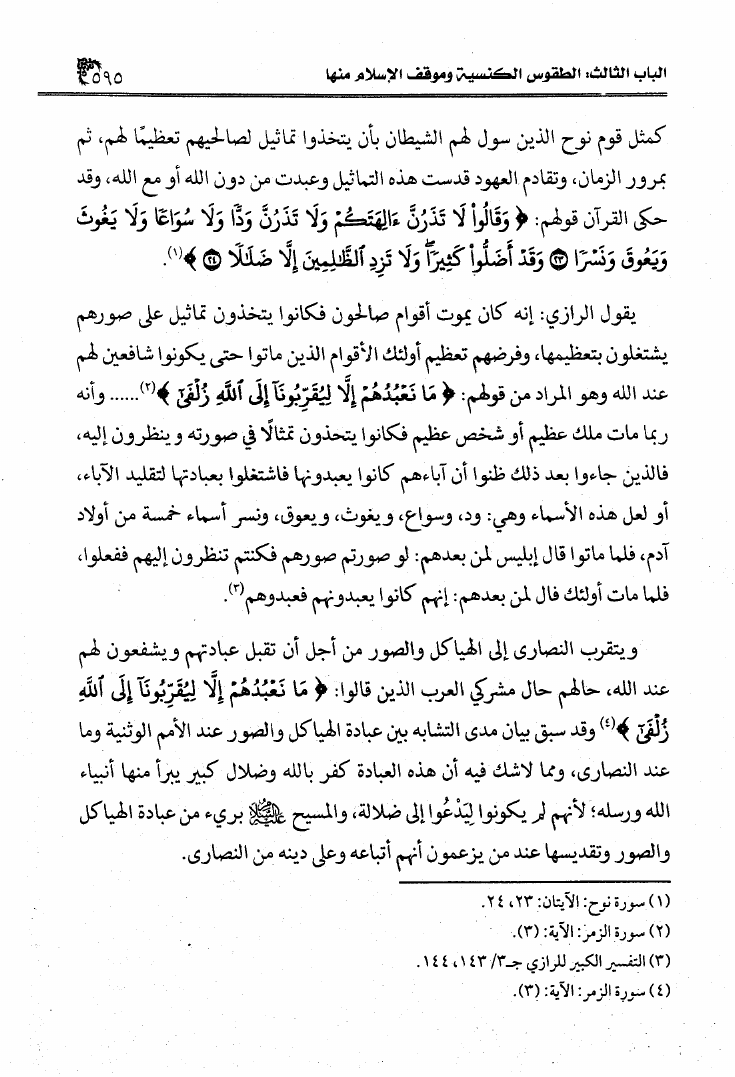 الباب الثالث: الطقوس الكنسية وموقف الإسلام منها ٥٩٥
كمثل قوم نوح الذين سول لهم الشيطان بأن يتخذوا تماثيل لصالحيهم تعظيمًا لهم، ثم
بمرور الزمان، وتقادم العهود قدست هذه التماثيل وعبدت من دون الله أو مع الله، وقد
حكى القرآن قولهم: ﴿ وَقَالُواْ لَا تَذَرُنَّ ءَالِهَتَكُمْ وَلَا تَذَرُنَّ وَدًّا وَلَا سُوَاعًا وَلَا يَغُوثَ
وَيَعُوقَ وَنَسْرًا ۝٢٣ وَقَدْ أَضَلُّواْ كَثِيرًاۖ وَلَا تَزِدِ ٱلظَّٰلِمِينَ إِلَّا ضَلَٰلًا ۝٢٤ ﴾(١).
يقول الرازي: إنه كان يموت أقوام صالحون فكانوا يتخذون تماثيل على صورهم
يشتغلون بتعظيمها، وفرضهم تعظيم أولئك الأقوام الذين ماتوا حتى يكونوا شافعين لهم
عند الله وهو المراد من قولهم: ﴿ مَا نَعْبُدُهُمْ إِلَّا لِيُقَرِّبُونَآ إِلَى ٱللَّهِ زُلْفَىٰٓ ﴾(٢)...... وأنه
ربما مات ملك عظيم أو شخص عظيم فكانوا يتحذون تمثالًا في صورته وينظرون إليه،
فالذين جاءوا بعد ذلك ظنوا أن آباءهم كانوا يعبدونها فاشتغلوا بعبادتها لتقليد الآباء،
أو لعل هذه الأسماء وهي: ود، وسواع، ويغوث، ويعوق، ونسر أسماء خمسة من أولاد
آدم، فلما ماتوا قال إبليس لمن بعدهم: لو صورتم صورهم فكنتم تنظرون إليهم ففعلوا،
فلما مات أولئك فال لمن بعدهم: إنهم كانوا يعبدونهم فعبدوهم(٣).
ويتقرب النصارى إلى الهياكل والصور من أجل أن تقبل عبادتهم ويشفعون لهم
عند الله، حالهم حال مشركي العرب الذين قالوا: ﴿ مَا نَعْبُدُهُمْ إِلَّا لِيُقَرِّبُونَآ إِلَى ٱللَّهِ
زُلْفَىٰٓ ﴾(٤) وقد سبق بيان مدى التشابه بين عبادة الهياكل والصور عند الأمم الوثنية وما
عند النصارى، ومما لاشك فيه أن هذه العبادة كفر بالله وضلال كبير يبرأ منها أنبياء
الله ورسله؛ لأنهم لم يكونوا لِيَدْعُوا إلى ضلالة، والمسيح عليه السلام بريء من عبادة الهياكل
والصور وتقديسها عند من يزعمون أنهم أتباعه وعلى دينه من النصارى.
(١) سورة نوح: الآيتان: ٢٣، ٢٤.
(٢) سورة الزمر: الآية: (٣).
(٣) التفسير الكبير للرازي جـ٣/ ١٤٣، ١٤٤.
(٤) سورة الزمر: الآية: (٣).